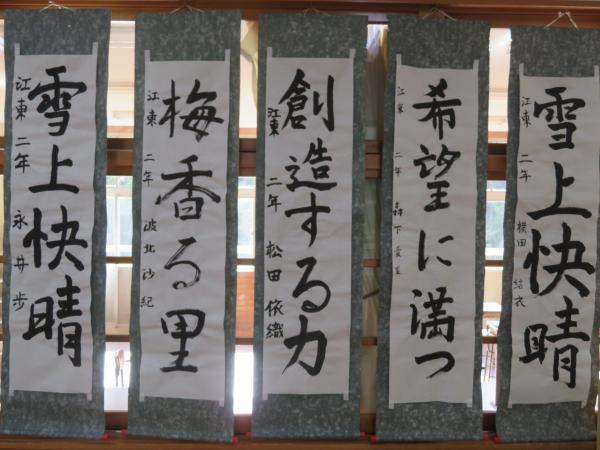 雪上快晴
江東 二年 横田 結衣
希望に満つ
江東 二年 森下
創造する力
江東 二年 松田 依織
梅香る里
江東 二年 波北 沙紀
雪上快晴
江東 二年 永井 歩